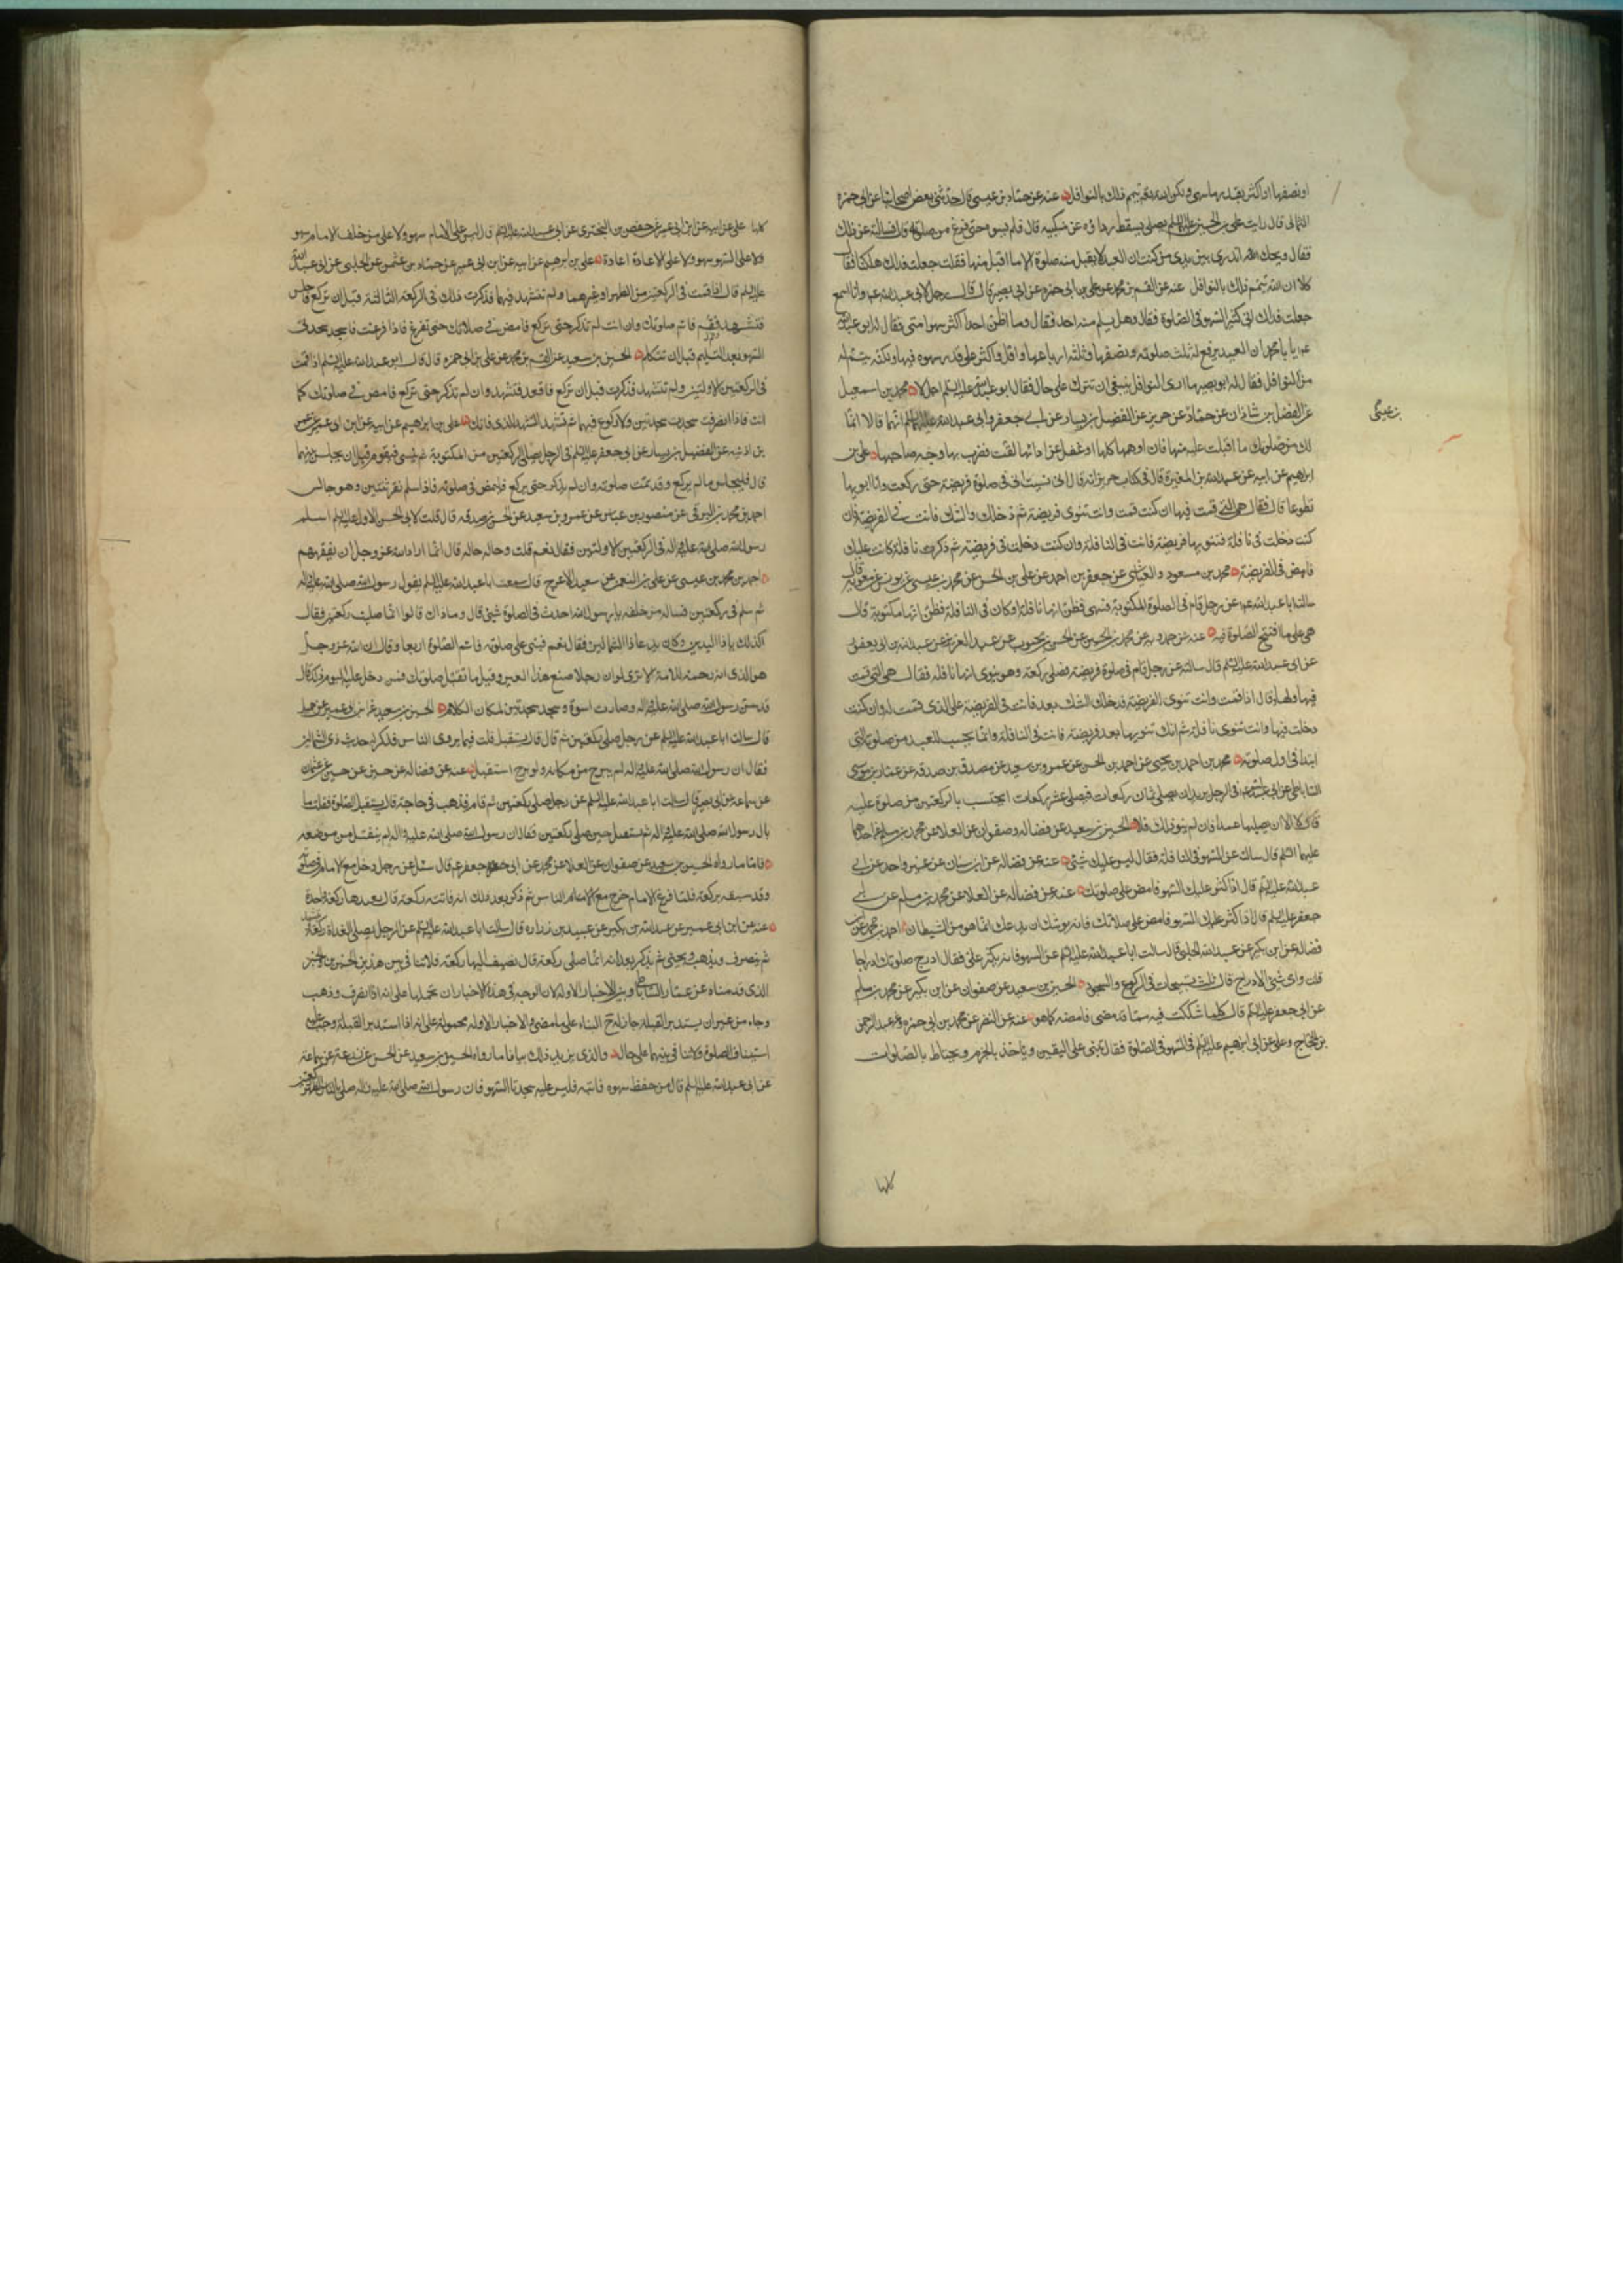 او نصفها او اكثر بقدر ما سهى ولكن الله يتم ذلك بالنوافل عنه عن حماد بن عيسى قال حدثنى بعض اصحابنا عن ابى حمزه
الثمالى قال رايت على بن الحسين عليه السلم يصلى فسقط رداؤه عن منكبيه قال فلم يسوه حتى فرغ من صلوته قال فسالته عن ذلك
فقال ويحك اتدرى بين يدى من كنت ان العبد لا يقبل منه صلوة الا ما اقبل منها فقلت جعلت فداك هلكنا فقال
كلا ان الله يتمم ذلك بالنوافل عنه عن القسم بن محمد عن على بن ابى حمزه عن ابى بصير قال قال رجل لابى عبد الله عم وانا اسمع
جعلت فداك انى كثير السهو فى الصلوة فقال وهل يسلم منه احد فقال وما اظن احدا اكثر سهوا منى فقال له ابو عبد الله
عم يا با محمد ان العبد يرفع له ثلث صلوته ونصفها وثلثة ارباعها واقل واكثر على قدر سهوه فيها ولكنه يتم له
من النوافل فقال له ابو بصير ما ارى النوافل ينبغى ان تترك على حال فقال ابو عبد الله عليه السلم اجل لا محمد بن اسمعيل
عن الفضل بن شاذان عن حماد عن حريز عن الفضيل بن يسار عن ابى جعفر وابى عبد الله عليهما السلم انهما قالا انما
بن عيسى
لك من صلوتك ما اقبلت عليه منها فان اوهمها كلها او غفل عن ادائها لفت فضرب بها وجه صاحبها على بن
ابرهيم عن ابيه عن عبد الله بن المغيرة قال فى كتاب حريز انه قال انى نسيت انى فى صلوة فريضة حتى ركعت وانا انويها
تطوعا قال فقال هى التى قمت فيها ان كنت قمت وانت تنوى فريضة ثم دخلك الشك فانت فى الفريضة وان
كنت دخلت فى نافلة فنويتها فريضة فانت فى النافلة وان كنت دخلت فى فريضة ثم ذكرت نافلة كانت عليك
فامض فى الفريضة محمد بن مسعود العياشى عن جعفر بن احمد عن على بن الحسن عن محمد بن عيسى عن يونس عن معويه قال
سالت ابا عبد الله عم عن رجل قام فى الصلوة المكتوبة فسهى فظن انها نافلة او كان فى النافلة فظن انها مكتوبة قال
هى على ما افتتح الصلوة فيه عنه عن حمدويه عن محمد بن الحسين عن الحسن بن محبوب عن عبد العزيز عن عبد الله بن ابى يعفور
عن ابى عبد الله عليه السلم قال سالته عن رجل قام فى صلوة فريضة فصلى ركعة وهو ينوى انها نافله فقال هى التى قمت
فيها ولها وقال اذا قمت وانت تنوى الفريضة فدخلك الشك بعد فانت فى الفريضة على الذى قمت له وان كنت
دخلت فيها وانت تنوى نافلة ثم انك تنويها بعد فريضة فانت فى النافلة وانما يحسب للعبد من صلوته التى
ابتدا فى اول صلوته محمد بن احمد بن يحيى عن احمد بن الحسن عن عمرو بن سعيد عن مصدق بن صدقه عن عمار بن موسى
الساباطى عن ابى عبد الله عم فى الرجل يريد ان يصلى ثمان ركعات فيصلى عشر ركعات ايحتسب بالركعتين من صلوة عليه
قال لا الا ان يصليها عمدا فان لم ينو ذلك فلا الحسين بن سعيد عن فضاله وصفوان عن العلا عن محمد بن مسلم عن احدهما
عليهما السلم قال سالته عن السهو فى النافلة فقال ليس عليك شيئ عنه عن فضالة عن ابن سنان عن غير واحد عن ابى
عبد الله عليه السلم قال اذا كثر عليك السهو فامض على صلوتك عنه عن فضاله عن العلا عن محمد بن مسلم عن ابى
جعفر عليه السلم قال اذا كثر عليك السهو فامض على صلاتك فانه يوشك ان يدعك انما هو من الشيطان احمد بن محمد عن
فضاله عن ابن بكير عن عبيد الله الحلبى قال سالت ابا عبد الله عليه السلم عن السهو فانه يكثر على فقال ادرج صلوتك ادراجا
قلت واى شيئ الادراج قال ثلث تسبيحات فى الركوع والسجود الحسين بن سعيد عن صفوان عن ابن بكير عن محمد بن مسلم
عن ابى جعفر عليه السلم قال كلما شككت فيه مما قد مضى فامضه كما هو عنه عن النضر عن محمد بن ابى حمزه وعبد الرحمن
بن الحجاج وعلى عن ابى ابرهيم عليه السلم فى السهو فى الصلوة فقال تبنى على اليقين وياخذ بالجزم ويحتاط بالصلوات
كلها
كلها على عن ابيه عن ابن ابى عمير عن حفص بن البخترى عن ابى عبد الله عليه السلم قال ليس على الامام سهو ولا على من خلف الامام سهو
ولا على السهو سهو ولا على الاعادة اعادة على بن ابرهيم عن ابيه عن ابن ابى عمير عن حماد بن عثمن عن الحلبى عن ابى عبد الله
عليه السلم قال اذا قمت فى الركعتين من الظهر او غيرهما ولم تتشهد فيهما فذكرت ذلك فى الركعة الثالثة قبل ان تركع فاجلس
فتشهد وقم فاتم صلوتك وان انت لم تذكر حتى تركع فامض فى صلاتك حتى تفرغ فاذا فرغت فاسجد سجدتى
السهو بعد التسليم قبل ان تتكلم الحسين بن سعيد عن القسم بن محمد عن على بن ابى حمزه قال قال ابو عبد الله عليه السلم اذا قمت
فى الركعتين الاولتين ولم تتشهد فذكرت قبل ان تركع فاقعد فتشهد وان لم تذكر حتى تركع فامض فى صلوتك كما
انت فاذا انصرفت سجدت سجدتين لا ركوع فيهما ثم تشهد التشهد الذى فاتك على بن ابرهيم عن ابيه عن ابن ابى عمير عن عمر
بن اذينه عن الفضيل بن يسار عن ابى جعفر عليه السلم فى الرجل يصلى الركعتين من المكتوبة ثم ينسى فيقوم قبل ان يجلس بينهما
قال فليجلس ما لم يركع وقد تمت صلوته وان لم يذكر حتى يركع فليمض فى صلوته فاذا سلم نقر ثنتين وهو جالس
احمد بن محمد البرقى عن منصور بن عباس عن عمرو بن سعيد عن الحسن بن صدقه قال قلت لابى الحسن الاول عليه السلم اسلم
رسول الله صلى الله عليه واله فى الركعتين الاولتين فقال نعم قلت وحاله حاله قال انما اراد الله عز وجل ان يفقههم
احمد بن محمد بن عيسى عن على بن النعمن عن سعيد الاعرج قال سمعت ابا عبد الله عليه السلم يقول رسول الله صلى الله عليه واله
ثم سلم فى ركعتين فساله من خلفه يا رسول الله احدث فى الصلوة شيئ قال وما ذاك قالوا انما صليت ركعتين فقال
اكذلك يا ذا اليدين وكان يدعا ذا الشمالين فقال نعم فبنى على صلوته فاتم الصلوة اربعا وقال ان الله عز وجل
هو الذى انساه رحمة للامة الا ترى لو ان رجلا صنع هذا لعير وقيل ما تقبل صلوتك فمن دخل عليه اليوم ذلك قال
قد سن رسول الله صلى الله عليه واله وصارت اسوة وسجد سجدتين لمكان الكلام الحسين بن سعيد عن ابن ابى عمير عن جميل
قال سالت ابا عبد الله عليه السلم عن رجل صلى ركعتين ثم قام قال يستقبل قلت فما يروى الناس فذكر له حديث ذى الشمالين
فقال ان رسول الله صلى الله عليه واله لم يبرح من مكانه ولو برح استقبل عنه عن فضاله عن حسين بن عثمان
عن سماعة عن ابى بصير قال سالت ابا عبد الله عليه السلم عن رجل صلى ركعتين ثم قام فذهب فى حاجته قال يستقبل الصلوة فقلت ما
بال رسول الله صلى الله عليه واله لم يستقبل حين صلى ركعتين فقال ان رسول الله صلى الله عليه واله لم ينفتل من موضعه
فاما ما رواه الحسين بن سعيد عن صفوان عن العلا عن محمد عن ابى جعفر عم قال سئل عن رجل دخل مع الامام فى صلوته
وقد سبقه بركعة فلما فرغ الامام خرج مع الناس ثم ذكر بعد ذلك انه فاتته ركعة قال يعيدها ركعة واحدة
عنه عن ابن ابى عمير عن عبد الله بن بكير عن عبيد بن زراره قال سالت ابا عبد الله عليه السلم عن الرجل يصلى الغداة ركعة
ثم ينصرف ويذهب ويجئ ثم يذكر بعد انه انما صلى ركعة قال يضيف اليها ركعة فلا تنافى بين هذين الخبرين والخبر
الذى قدمناه عن عمار الساباطى وبين الاخبار الاوله لان الوجه فى هذه الاخبار ان نحملها على انه اذا انصرف وذهب
وجاء من غير ان يستدبر القبلة جاز له ح البناء على ما مضى والاخبار الاوله محمولة على انه اذا استدبر القبلة وجب عليه
استيناف الصلوة فلا تنافى بينهما على حال والذى يزيد ذلك بيانا ما رواه الحسين بن سعيد عن الحسن عن زرعة عن سماعة
عن ابى عبد الله عليه السلم قال من حفظ سهوه فاتمه فليس عليه سجدتا السهو فان رسول الله صلى الله عليه واله صلى بالناس الظهر ركعتين